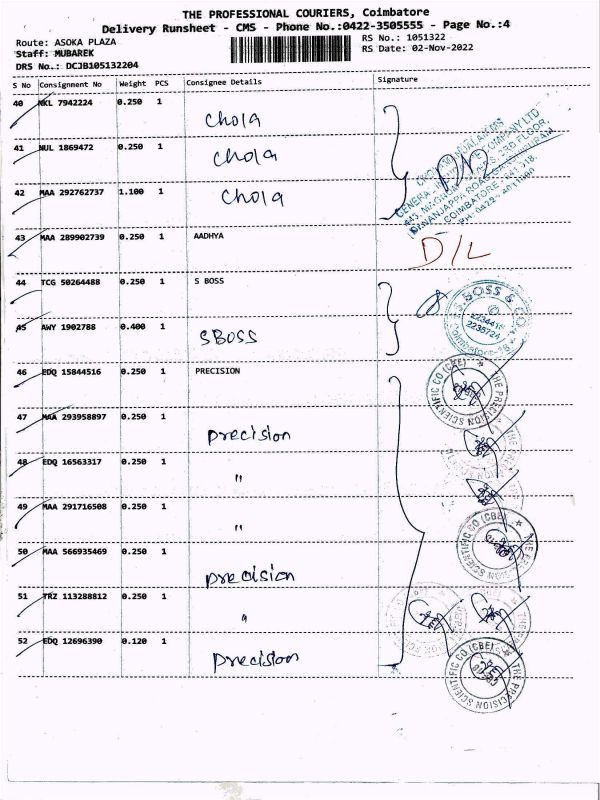 THE PROFESSIONAL COURIERS, Coimbatore
Delivery Runsheet - CMS - Phone No.:0422-3505555 - Page No.:4
Route: ASOKA PLAZA RS No.: 1051322
Staff: MUBAREK RS Date: 02-Nov-2022
DRS No.: DCJB105132204
S No Consignment No Weight PCS Consignee Details Signature
40 NKL 7942224 0.250 1
Chola
41 NUL 1869472 0.250 1
Chola
42 MAA 292762737 1.100 1
Chola
43 MAA 289902739 0.250 1 AADHYA
D/L
44 TCG 50264488 0.250 1 S BOSS
S.BOSS & CO
2234418
2235724
Coimbatore-18
45 AWY 1902788 0.400 1
SBOSS
46 EDQ 15844516 0.250 1 PRECISION
THE PRECISION SCIENTIFIC CO (CBE)
47 MAA 293958897 0.250 1
Precision
48 EDQ 16563317 0.250 1
"
49 MAA 291716508 0.250 1
"
THE PRECISION SCIENTIFIC CO (CBE)
50 MAA 566935469 0.250 1
precision
51 TRZ 113288812 0.250 1
"
52 EDQ 12696390 0.120 1
Precision
THE PRECISION SCIENTIFIC CO (CBE)